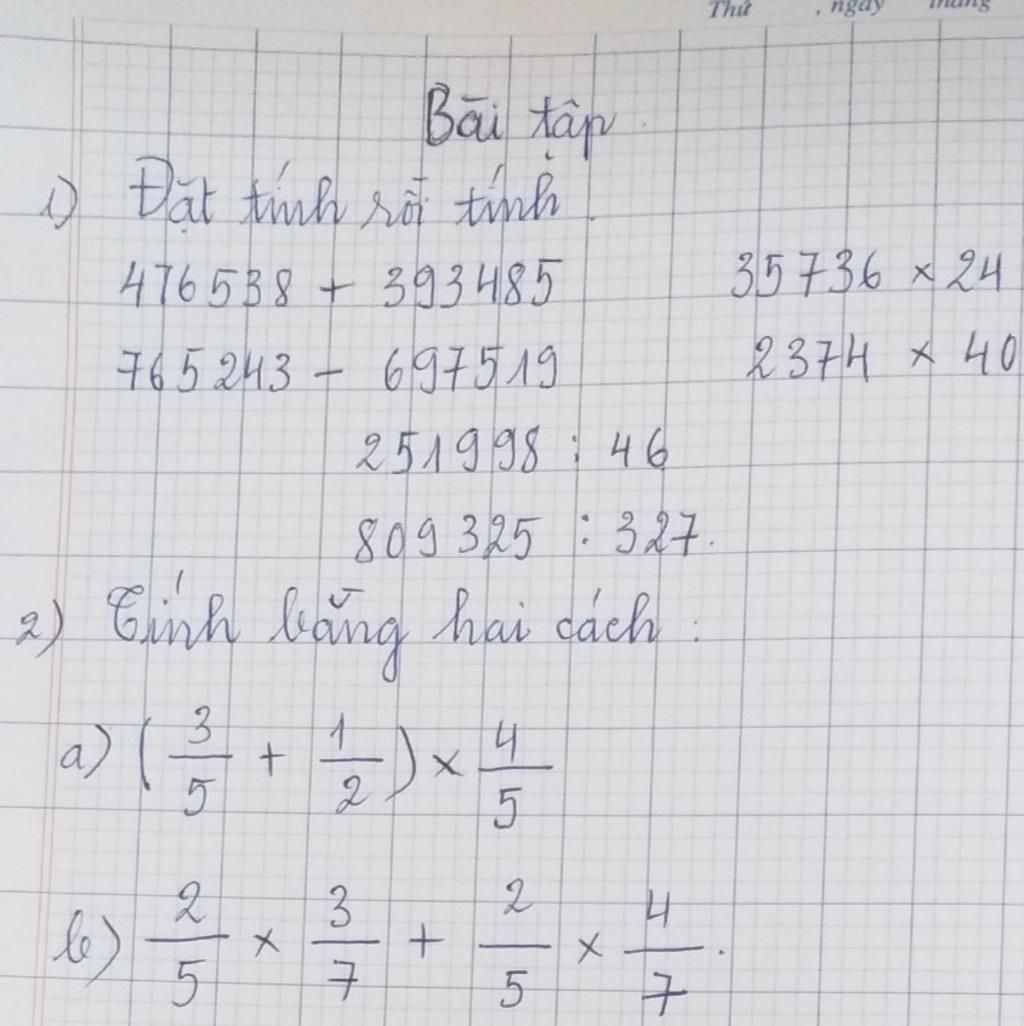 Thứ , ngày tháng
Bài tập
1) Đặt tính rồi tính
476538 + 393485 35736 × 24
765243 - 697519 2374 × 40
251998 : 46
809325 : 327.
2) Tính bằng hai cách :
a) (3/5 + 1/2) × 4/5
b) 2/5 × 3/7 + 2/5 × 4/7.